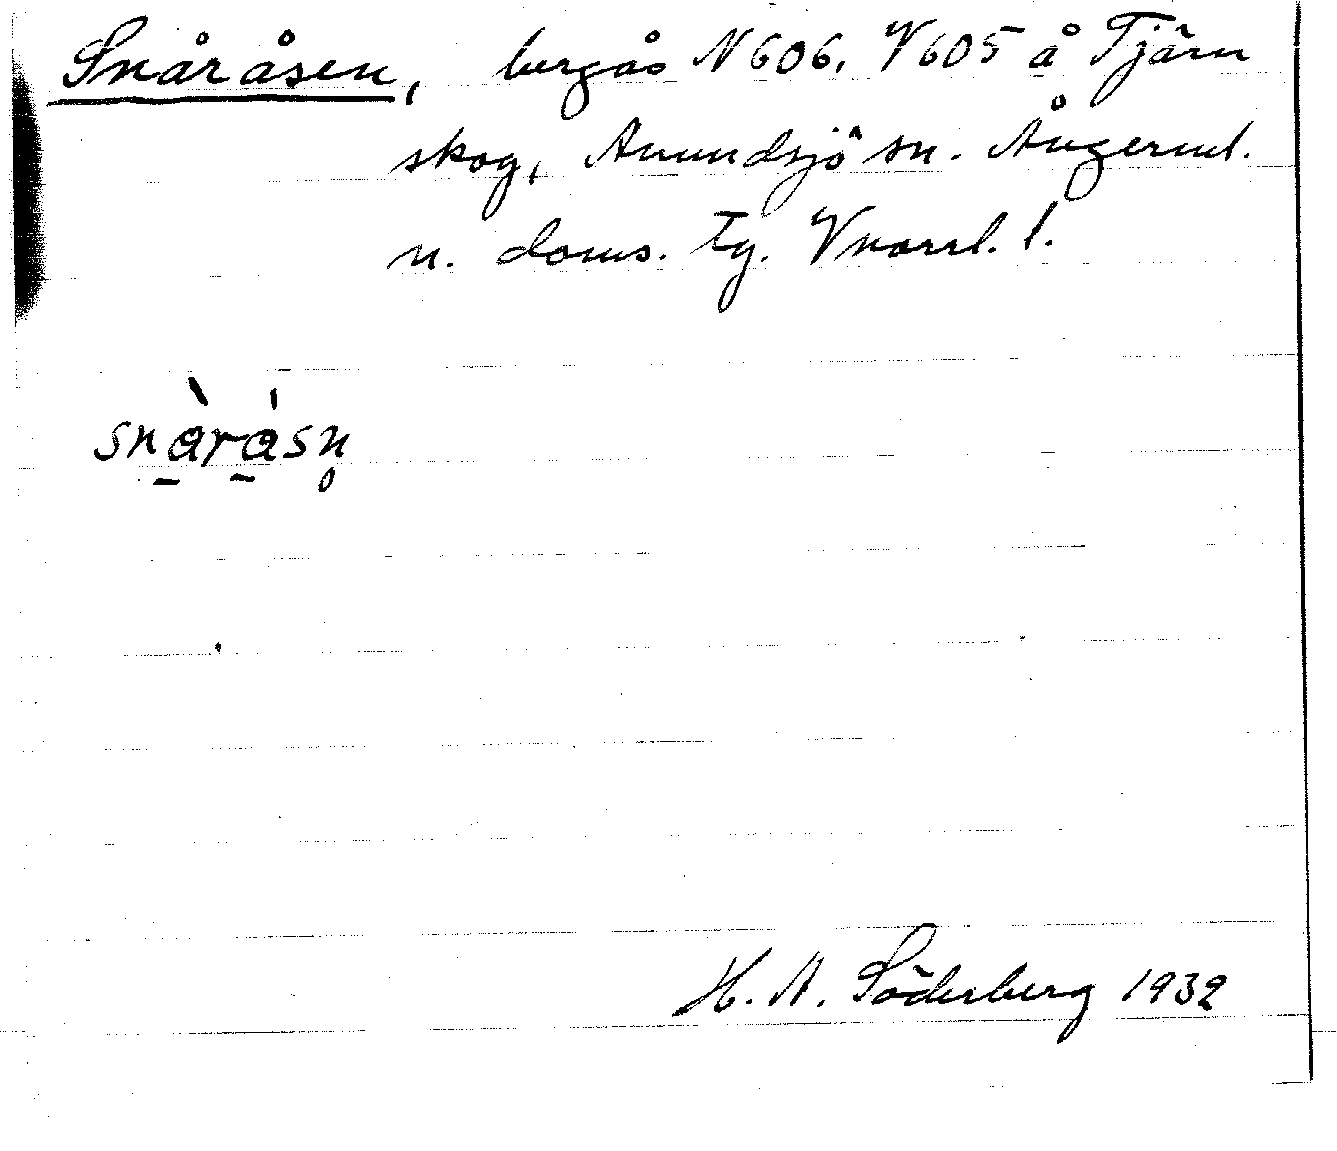 Snåråsen, bergås N606. V605 å Tjärn
skog, Anundsjö sn. Ångerml.
n. doms. tg. Vnorrl. l.
snåråsn̥
H. A. Söderberg 1932